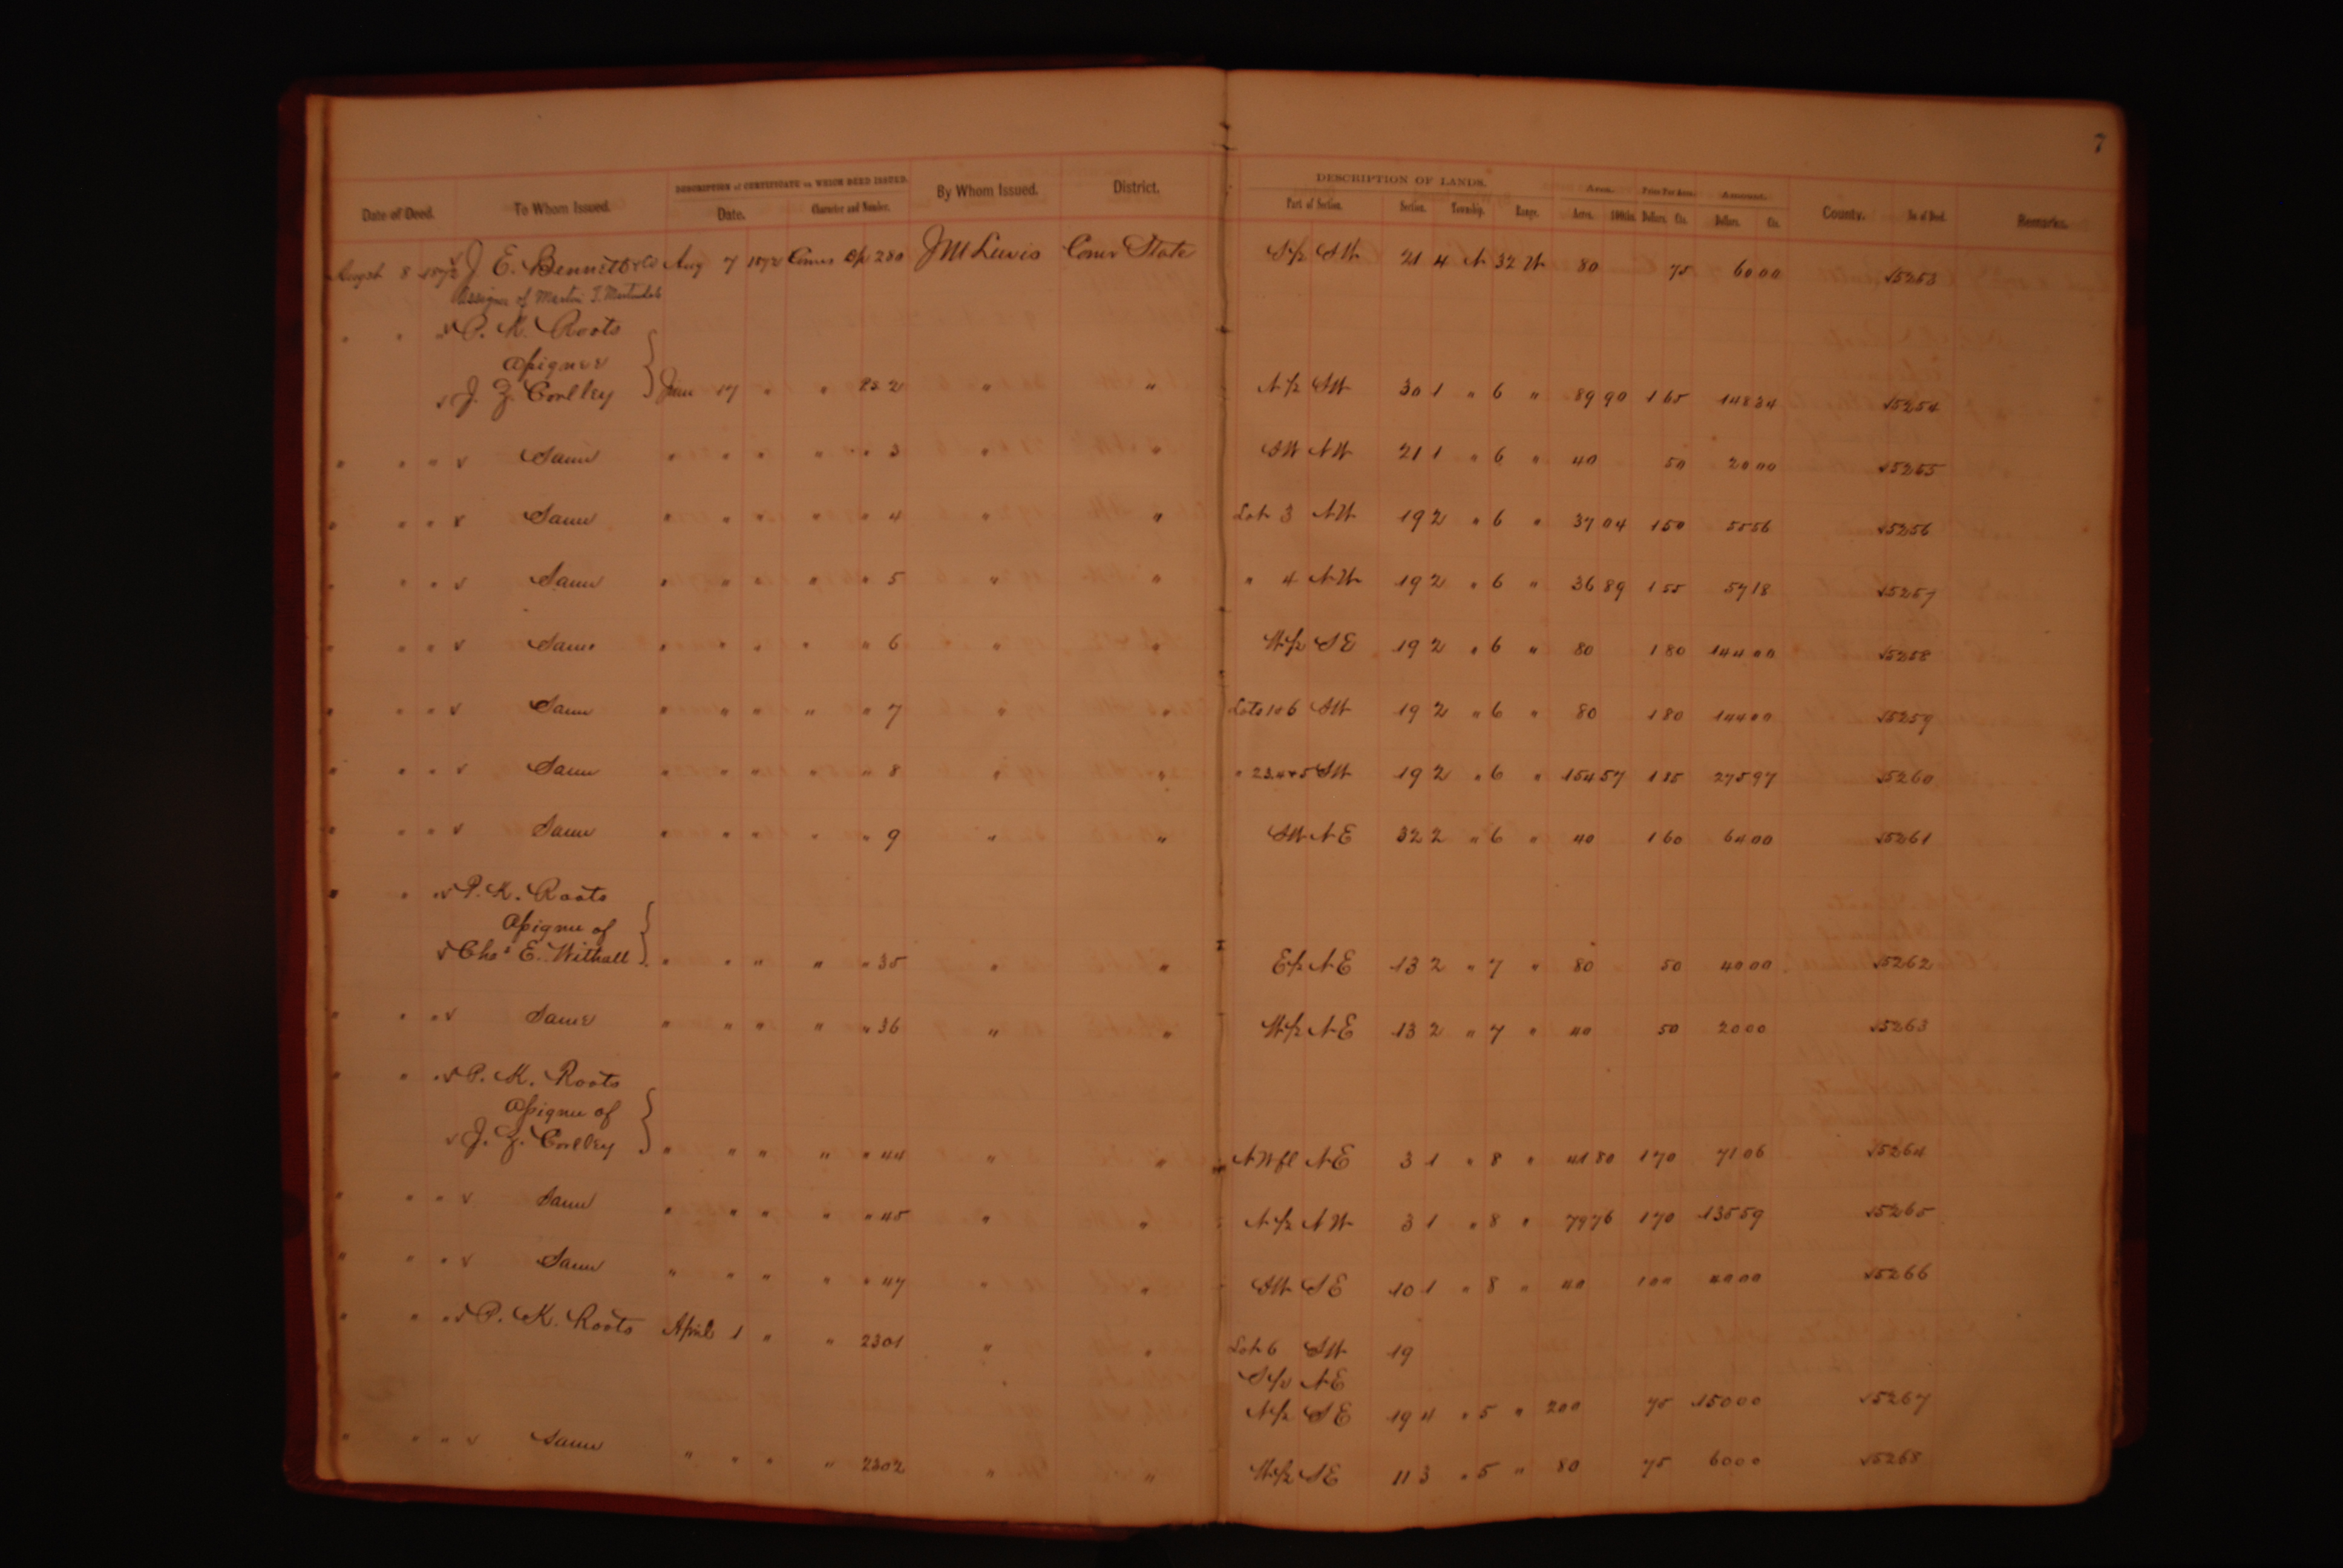 7
DESCRIPTION of CERTIFICATE on WHICH DEED ISSUED. DESCRIPTION OF LANDS. Area. Price Per Acre. Amount.
Date of Deed. To Whom Issued. Date. Character and Number. By Whom Issued. District. Part of Section. Section. Township. Range. Acres. 100ths. Dollars. Cts. Dollars. Cts. County. No. of Deed. Remarks.
August 8 1872 J. E. Bennett & Co Aug 7 1872 280 J M Lewis Comr State S½ SW 21 4 N 32 W 80 75 60 00 15253
Assignee of Martin
" " " P. K. Roots
Assignee
J. Corlley Jan 17 " " 2 " " N½ SW 30 1 " 6 " 89 90 1 65 148 34 15254
" " " Same " " " " " 3 " " SW NW 21 1 " 6 " 40 50 20 00 15255
" " " Same " " " " " 4 " " Lot 3 NW 19 2 " 6 " 37 04 1 50 55 56 15256
" " " Same " " " " " 5 " " " 4 NW 19 2 " 6 " 36 89 1 55 57 18 15257
" " " Same " " " " " 6 " " W½ SE 19 2 " 6 " 80 1 80 144 00 15258
" " " Same " " " " " 7 " " Lots 1 & 6 SW 19 2 " 6 " 80 1 80 144 00 15259
" " " Same " " " " " 8 " " " 2 3 4 & 5 SW 19 2 " 6 " 154 57 1 85 275 97 15260
" " " Same " " " " " 9 " " SW NE 32 2 " 6 " 40 1 60 64 00 15261
" " " P. K. Roots
Assignee of
Chas E. Withall " " " " " 35 " " E½ NE 13 2 " 7 " 80 50 40 00 15262
" " " Same " " " " " 36 " " W½ NE 13 2 " 7 " 40 50 20 00 15263
" " " P. K. Roots
Assignee of
J. Corlley " " " " " 44 " " NW fl NE 3 1 " 8 " 41 80 1 70 71 06 15264
" " " Same " " " " " 45 " " N½ NW 3 1 " 8 " 79 76 1 70 135 59 15265
" " " Same " " " " " 47 " " SW SE 10 1 " 8 " 40 1 00 40 00 15266
" " " P. K. Roots April 1 " " 2301 " " Lot 6 SW 19
S½ NE
N½ SE 19 4 " 5 " 200 75 150 00 15267
" " " Same " " " " 2302 " " W½ SE 11 3 " 5 " 80 75 60 00 15268